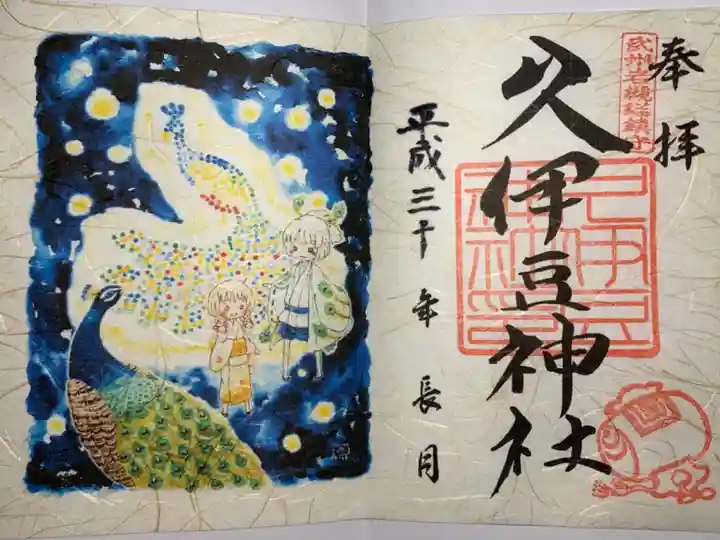 奉拝
武州岩槻総鎮守
久伊豆神社
平成三十年長月